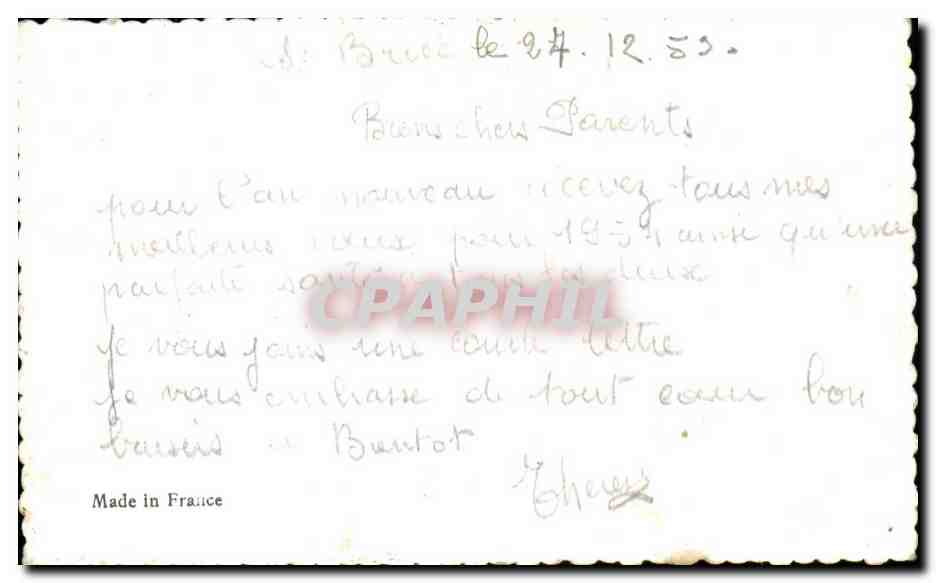 St Brieuc le 27.12.53.
Biens chers Parents
pour l'an nouveau recevez tous mes
meilleurs voeux pour 1954 ainsi qu'une
parfaite santé tous les deux
CPAPHIL
Je vous joins une courte lettre
Je vous embrasse de tout coeur bon
baisers Bientot
Made in France